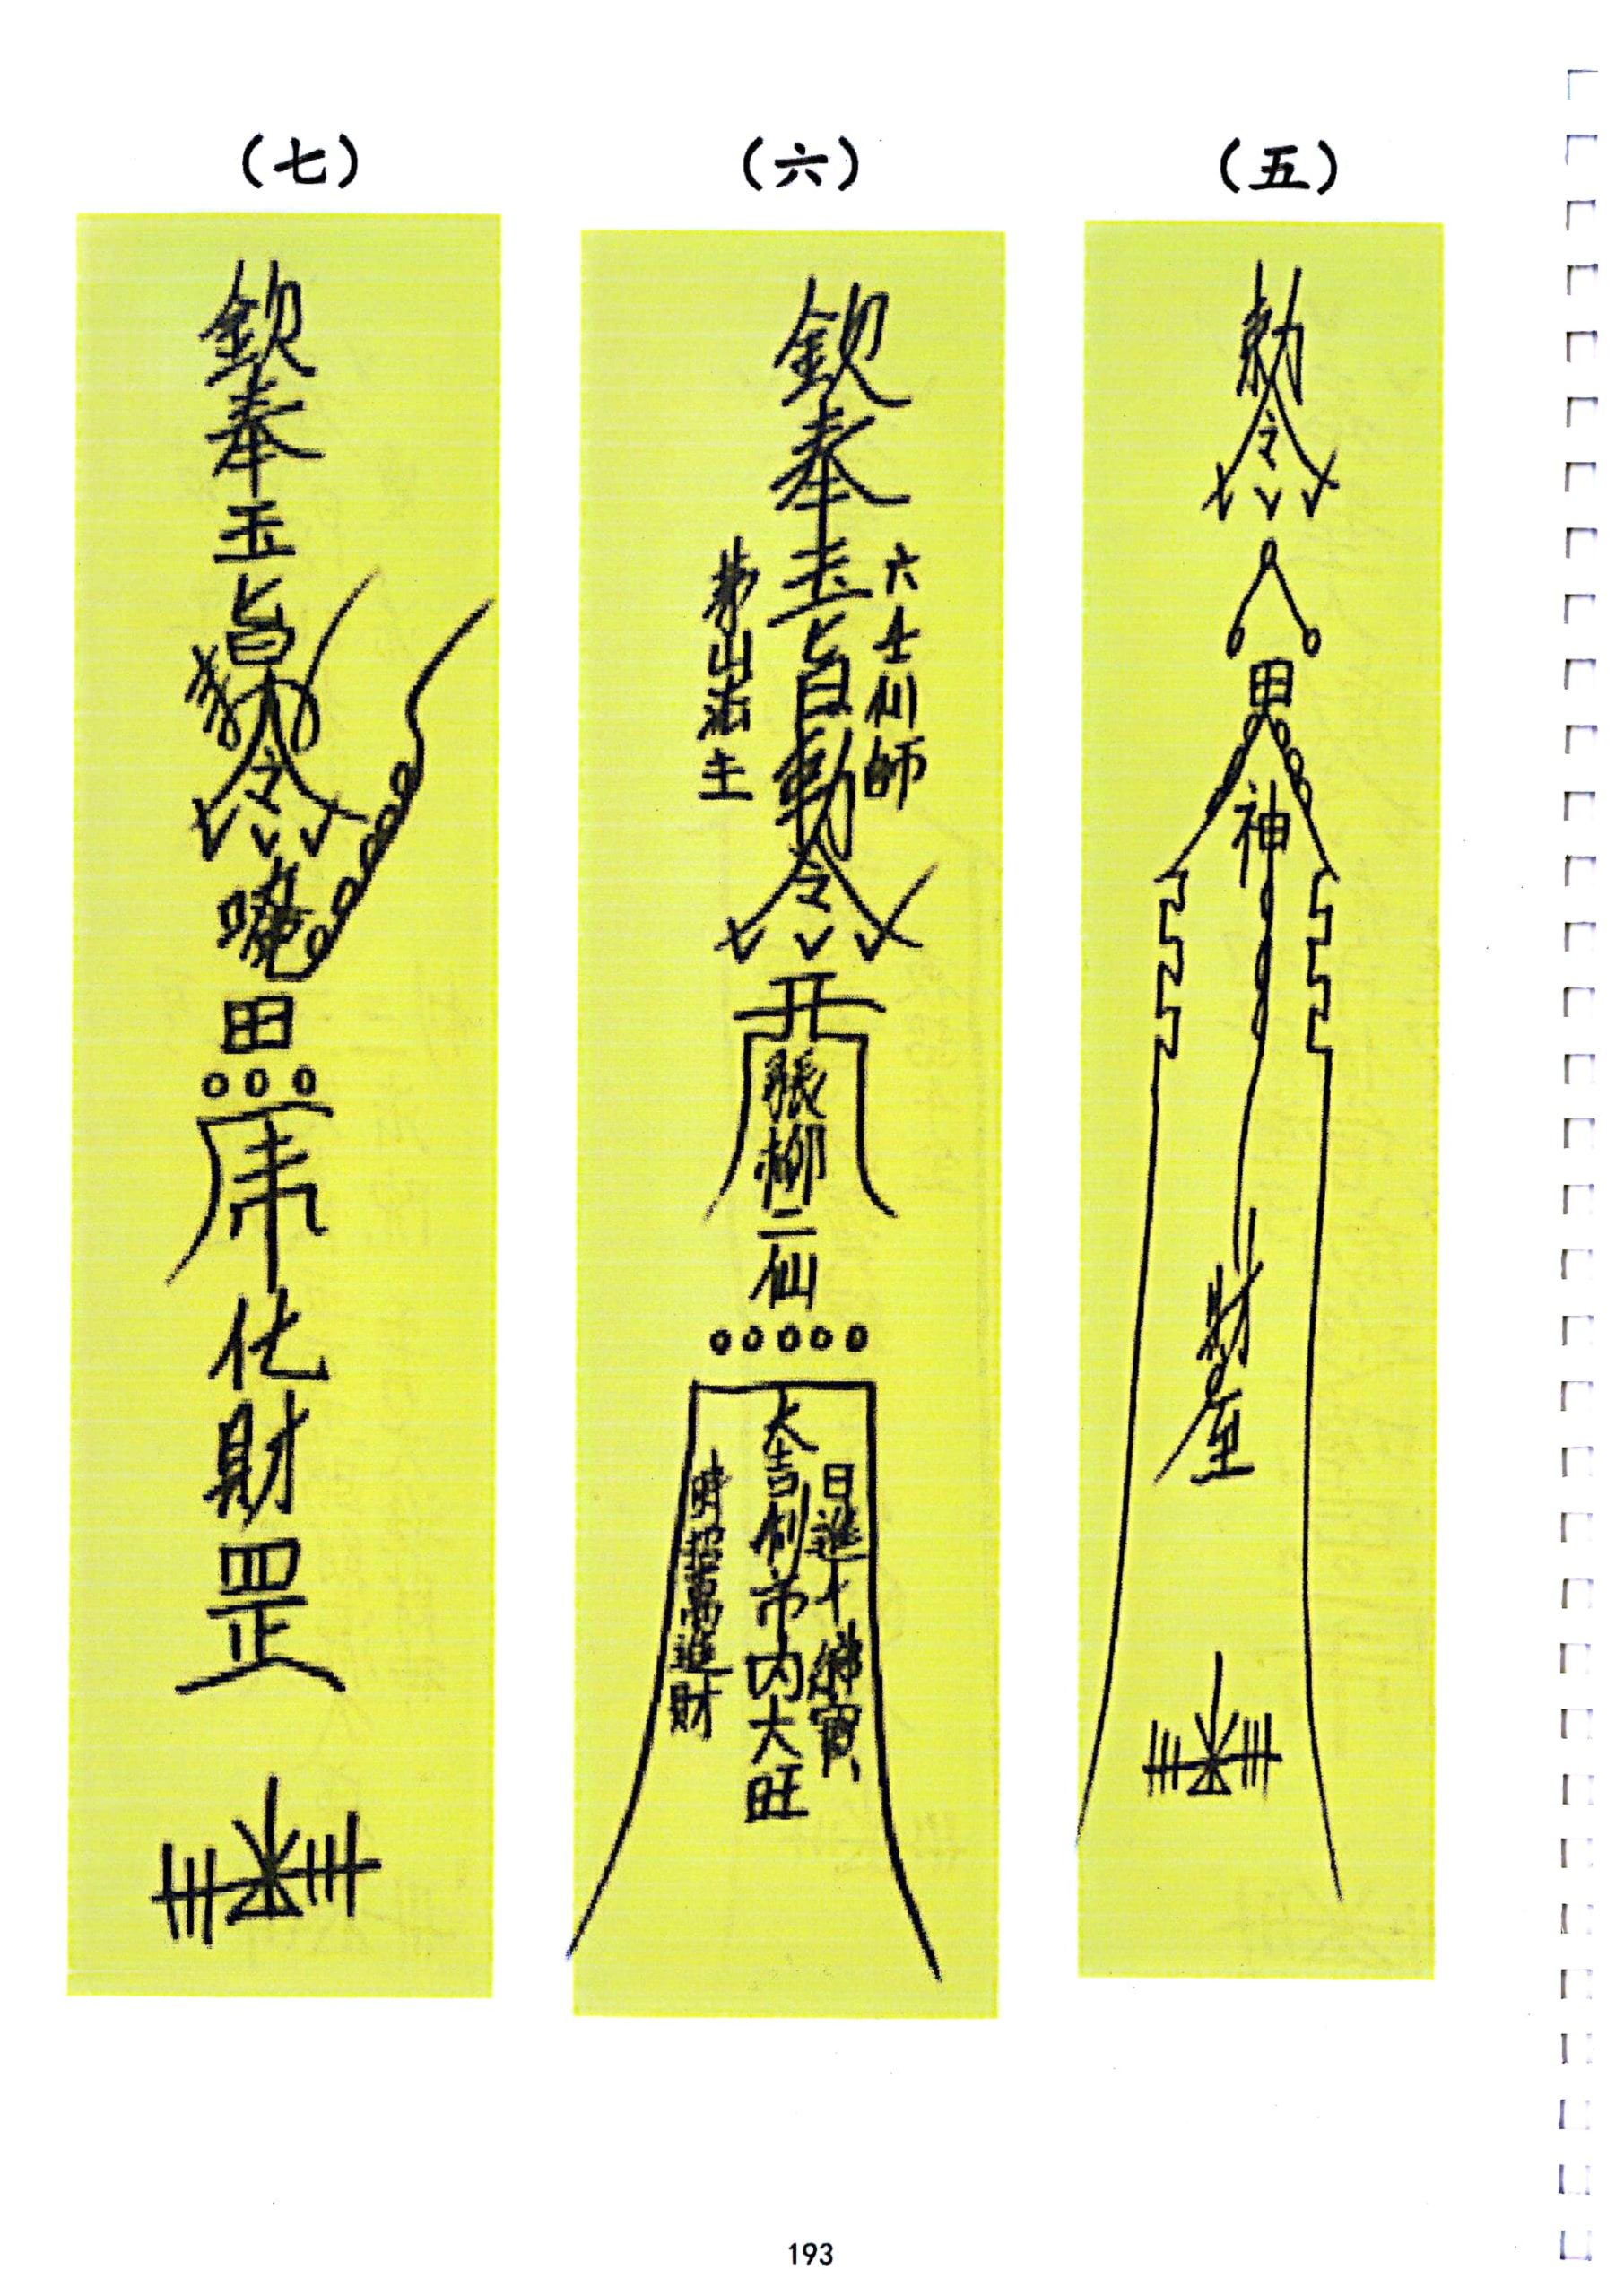 （五）
勅令
男
神
財
至
（六）
欽奉玉旨勅令
六士仙師
茅山法主
張柳二仙
大吉利市內大旺
日進千鄉寶
時招萬里財
（七）
欽奉玉旨
令
田
化財罡
193